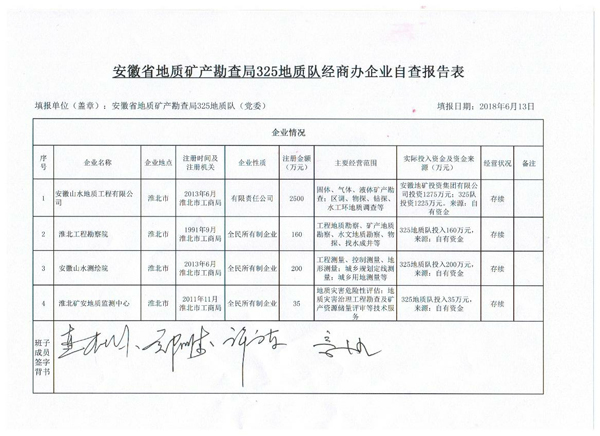 安徽省地质矿产勘查局325地质队经商办企业自查报告表
填报单位（盖章）：安徽省地质矿产勘查局325地质队（党委） 填报日期：2018年6月13日
企业情况
序号 企业名称 企业地点 注册时间及注册机关 企业性质 注册金额（万元） 主要经营范围 实际投入资金及资金来源（万元） 经营状况 备注
1 安徽山水地质工程有限公司 淮北市 2013年6月 淮北市工商局 有限责任公司 2500 固体、气体、液体矿产勘查；区调、物探、钻探、水工环地质调查等 安徽地矿投资集团有限公司投资1275万元；325队投资1225万元，来源：自有资金 存续
2 淮北工程勘察院 淮北市 1991年9月 淮北市工商局 全民所有制企业 160 工程地质勘察、矿产地质勘察、水文地质勘察、物探、找水成井等 325地质队投入160万元，来源：自有资金 存续
3 安徽山水测绘院 淮北市 2013年6月 淮北市工商局 全民所有制企业 200 工程测量、控制测量、地形测量；城乡规划定线测量；城乡用地测量等 325地质队投入200万元，来源：自有资金 存续
4 淮北矿安地质监测中心 淮北市 2011年11月 淮北市工商局 全民所有制企业 35 地质灾害危险性评估；地质灾害治理工程勘查及矿产资源储量评审等技术服务 325地质队投入35万元，来源：自有资金 存续
班子成员签字背书